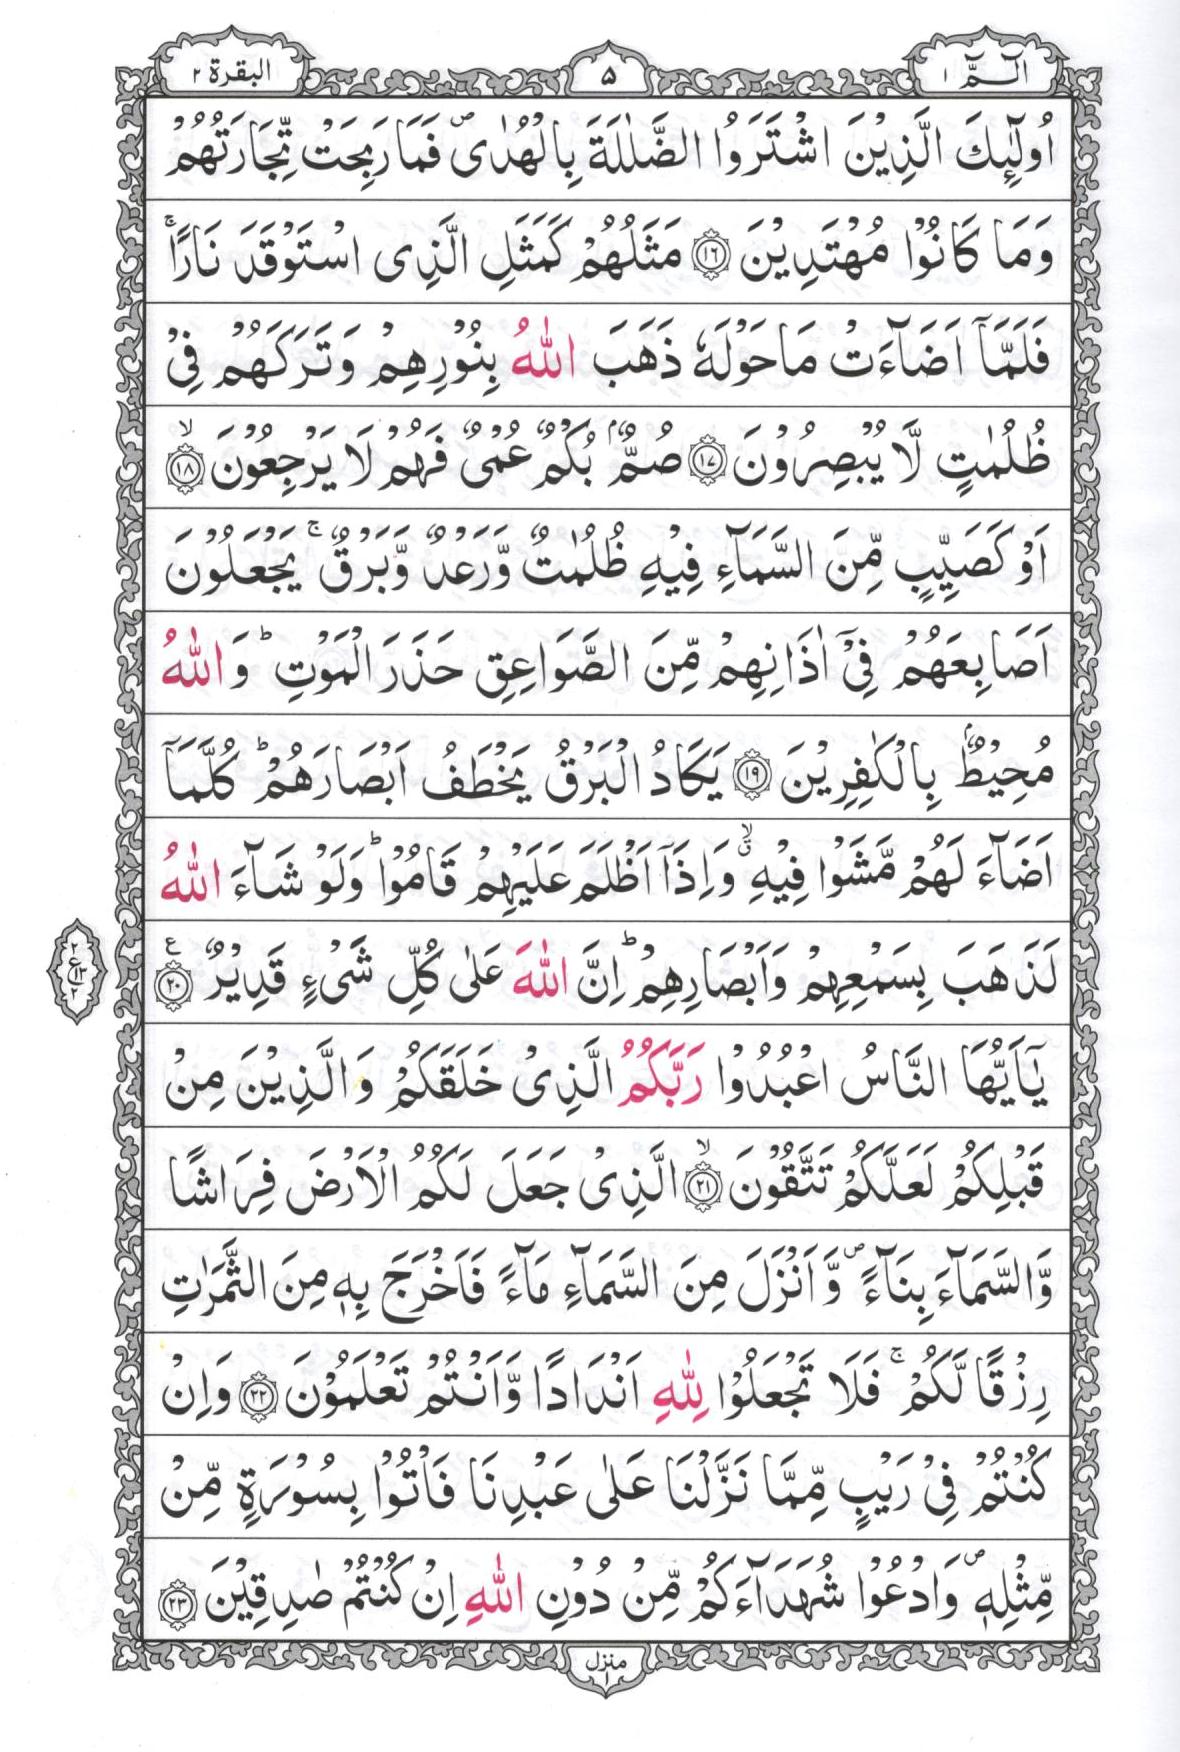 الٓمّٓ ١
۵
البقرة ٢
اُولٰٓئِكَ الَّذِيْنَ اشْتَرَوُا الضَّلٰلَةَ بِالْهُدٰى ۪ فَمَا رَبِحَتْ تِّجَارَتُهُمْ
وَمَا كَانُوْا مُهْتَدِيْنَ ۝١٦ مَثَلُهُمْ كَمَثَلِ الَّذِى اسْتَوْقَدَ نَارًا ۚ
فَلَمَّاۤ اَضَآءَتْ مَا حَوْلَهٗ ذَهَبَ اللّٰهُ بِنُوْرِهِمْ وَتَرَكَهُمْ فِىْ
ظُلُمٰتٍ لَّا يُبْصِرُوْنَ ۝١٧ صُمٌّۢ بُكْمٌ عُمْىٌ فَهُمْ لَا يَرْجِعُوْنَ ۙ۝١٨
اَوْ كَصَيِّبٍ مِّنَ السَّمَآءِ فِيْهِ ظُلُمٰتٌ وَّرَعْدٌ وَّبَرْقٌ ۚ يَجْعَلُوْنَ
اَصَابِعَهُمْ فِىْۤ اٰذَانِهِمْ مِّنَ الصَّوَاعِقِ حَذَرَ الْمَوْتِ ؕ وَاللّٰهُ
مُحِيْطٌۢ بِالْكٰفِرِيْنَ ۝١٩ يَكَادُ الْبَرْقُ يَخْطَفُ اَبْصَارَهُمْ ؕ كُلَّمَاۤ
اَضَآءَ لَهُمْ مَّشَوْا فِيْهِ ۙۗ وَاِذَاۤ اَظْلَمَ عَلَيْهِمْ قَامُوْا ؕ وَلَوْ شَآءَ اللّٰهُ
لَذَهَبَ بِسَمْعِهِمْ وَاَبْصَارِهِمْ ؕ اِنَّ اللّٰهَ عَلٰى كُلِّ شَىْءٍ قَدِيْرٌ ۝٢٠ ع
٢
ع١٣
٢
يٰۤاَيُّهَا النَّاسُ اعْبُدُوْا رَبَّكُمُ الَّذِىْ خَلَقَكُمْ وَالَّذِيْنَ مِنْ
قَبْلِكُمْ لَعَلَّكُمْ تَتَّقُوْنَ ۙ۝٢١ الَّذِىْ جَعَلَ لَكُمُ الْاَرْضَ فِرَاشًا
وَّالسَّمَآءَ بِنَآءً ۪ وَّاَنْزَلَ مِنَ السَّمَآءِ مَآءً فَاَخْرَجَ بِهٖ مِنَ الثَّمَرٰتِ
رِزْقًا لَّكُمْ ۚ فَلَا تَجْعَلُوْا لِلّٰهِ اَنْدَادًا وَّاَنْتُمْ تَعْلَمُوْنَ ۝٢٢ وَاِنْ
كُنْتُمْ فِىْ رَيْبٍ مِّمَّا نَزَّلْنَا عَلٰى عَبْدِنَا فَاْتُوْا بِسُوْرَةٍ مِّنْ
مِّثْلِهٖ ۪ وَادْعُوْا شُهَدَآءَكُمْ مِّنْ دُوْنِ اللّٰهِ اِنْ كُنْتُمْ صٰدِقِيْنَ ۝٢٣
منزل ١